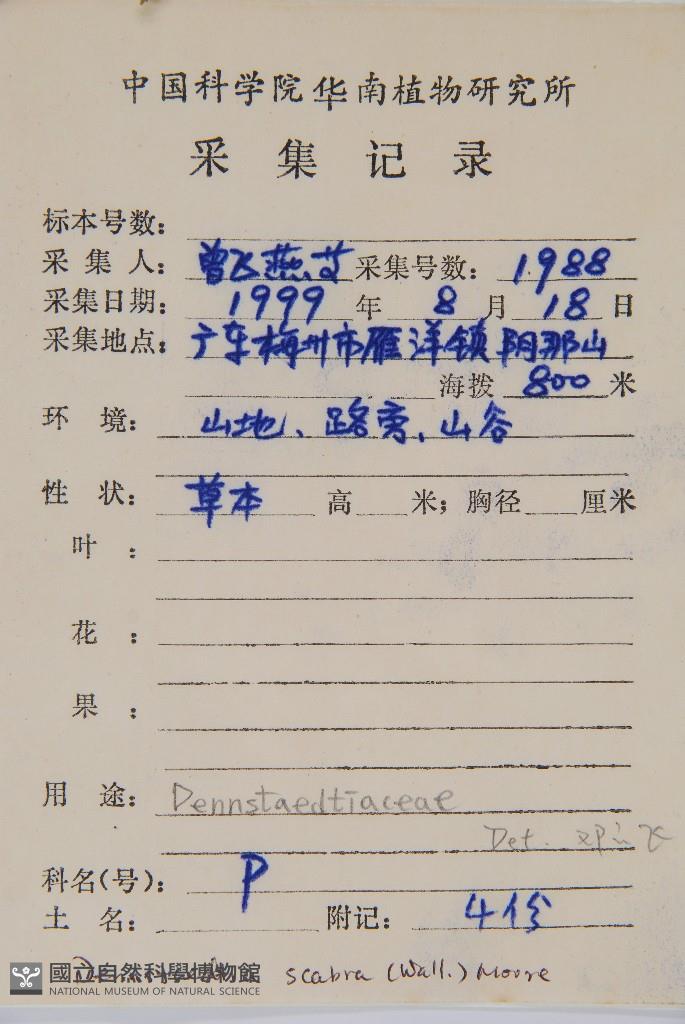 中国科学院华南植物研究所
采集记录
标本号数:
采集人: 曾飞燕等 采集号数: 1988
采集日期: 1999 年 8 月 18 日
采集地点: 广东梅州市雁洋镇阴那山
海拨 800 米
环境: 山地、路旁、山谷
性状: 草本 高 米; 胸径 厘米
叶:
花:
果:
用途: Dennstaedtiaceae
Det.
科名(号): P
土名: 附记: 4份
scabra (Wall.) Moore
國立自然科學博物館
NATIONAL MUSEUM OF NATURAL SCIENCE